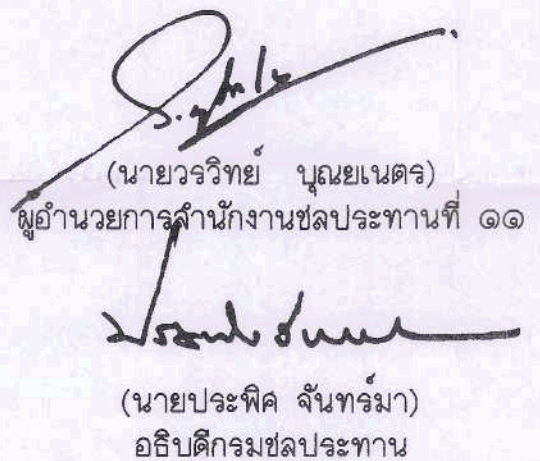 (นายวรวิทย์ บุณยเนตร)
ผู้อำนวยการสำนักงานชลประทานที่ ๑๑
(นายประพิศ จันทร์มา)
อธิบดีกรมชลประทาน